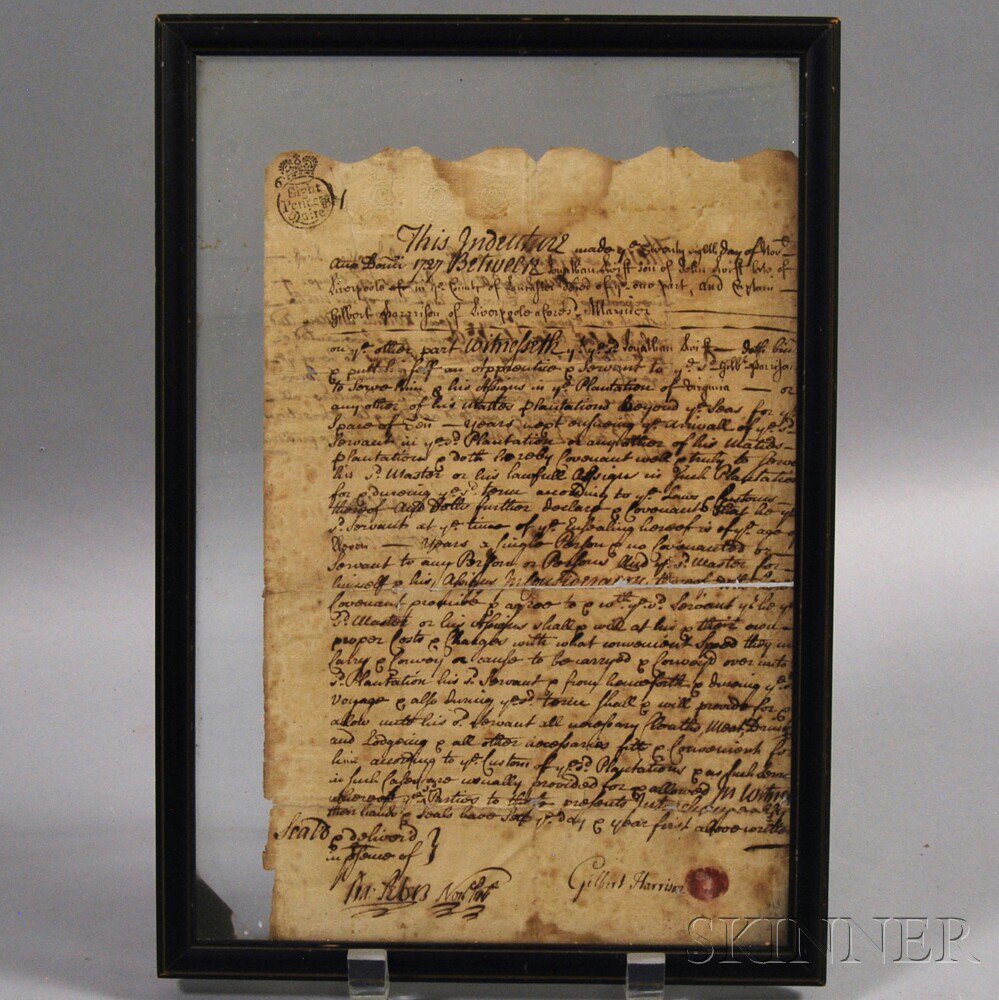 Eight Pence Quire
This Indenture made ye Twenty day of Novr
Anno Domi 1727 Between Jonathan Swift son of John Swift late of
Liverpoole in ye County of Lancaster of ye one part, and Captain
Gilbert Harrison of Liverpoole aforesd Mariner
on ye other part Witnesseth yt ye sd Jonathan Swift doth bind
& putt himself an Apprentice & Servant to ye sd Gilbt Harrison
to Serve him & his Assigns in ye Plantation of Virginia or
any other of his Maties Plantations beyond ye Seas for ye
Space of Ten Years next ensueing ye Arrivall of ye sd
Servant in ye sd Plantation or any other of his Maties
plantations & doth hereby Covenant well & truly to Serve
his sd Master or his lawfull Assigns in such Plantation
for & dureing ye sd term according to ye Laws & Customs
thereof And Doth further declare & Covenant that he ye
sd Servant at ye time of ye Ensealing hereof is of ye age of
Years a Single Person & no Covenanted or
Servant to any Person or Persons And ye sd Master for
himself & his Assigns
Covenant promise & agree to & wth ye sd Servant yt he ye
sd Master or his Assigns shall & will at his & their own
proper Costs & Charges with what convenient Speed they
Carry & Convey or cause to be carryed & Convey'd over unto
sd Plantation his sd Servant & from henceforth & dureing ye sd
Voyage & also dureing ye sd term shall & will provide for &
allow unto his sd Servant all necessary Cloaths, Meat, Drink
and Lodgeing & all other necessaries fitt & Convenient for
him according to ye Custom of ye sd Plantations & as such
in such Cases are usually provided for & allowed In Witness
whereof ye Parties to these presents Interchangeably
their hands & Seals have Sett ye day & year first above written
Seal'd & deliver'd
in psence of
Gilbert Harrison
SKINNER